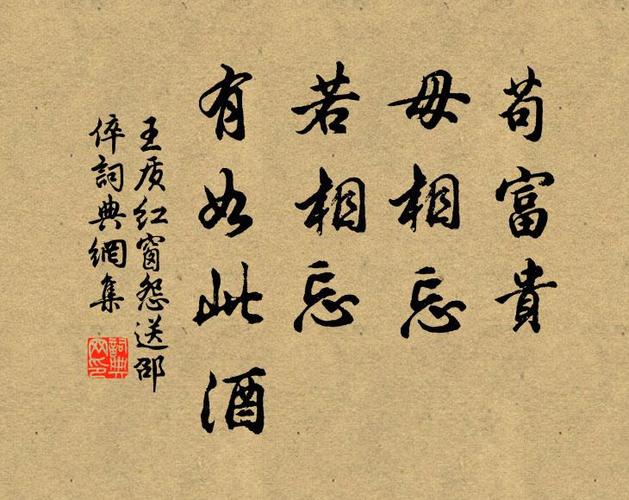 苟富貴
毋相忘
若相忘
有如此酒
王质红窗怨送邵
倅詞典網集
詞典
网印